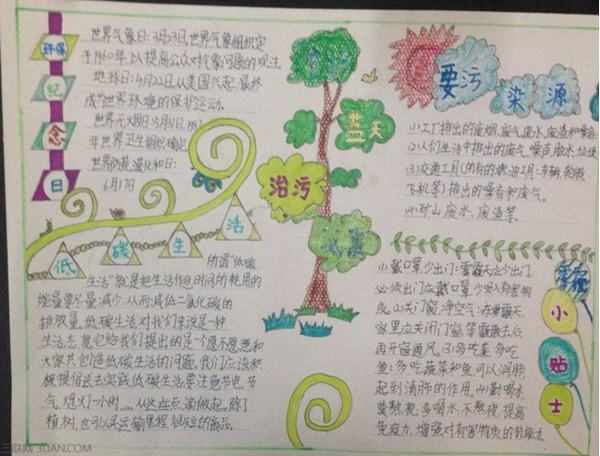 环保
纪
念
日
世界气象日:3月23日,世界气象组织定
于1960年,以提高公众对气象问题的关注。
地球日:4月22日从美国兴起,最终
成为世界环境的保护运动。
世界无烟日:5月31日,
年世界卫生组织确定
世界防治荒漠化和日:
6月17日
蓝天
治污
减霾
主要污
染源
(1)工厂排出的废烟、废气、废水、废渣和噪音
(2)人们生活中排出的废气、噪音、脏水、垃圾
(3)交通工具(所有的燃油工具:车辆、轮船
飞机等)排出的噪音和废气。
(4)矿山废水、废渣等。
低碳生活
所谓"低碳
生活"就是把生活作息时间所耗用的
能量要尽量减少,从而减低二氧化碳的
排放量。低碳生活对我们来说是一种
生活态度,它给我们提出的是个愿不愿意和
大家共创造低碳生活的问题,我们应该积
极提倡去实践低碳生活要注意节电、节
气、熄灯一小时……从这些点滴做起,除了
植树,也可以
雾霾
小
贴
士
(1)戴口罩,少出门:雾霾天气少出门
必须出门应戴口罩,少吸入有害物
质。(2)关门窗,净空气:在雾霾天
家里应关闭门窗,等雾霾散去后
再开窗通风。(3)多吃菜,多吃
鱼:多吃蔬菜和鱼可以润肺
起到清肺的作用。(4)勤喝水
莫熬夜:多喝水,不熬夜,提高
免疫力,增强对有害物质的抵御力
三联 3LIAN.COM